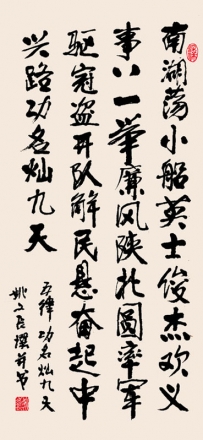 南湖荡小船英士俊杰欢义
事八一举廉风陕北图率军
驱寇盗开队解民悬奋起中
兴路功名灿九天
五律 功名灿九天
姚文长撰并书